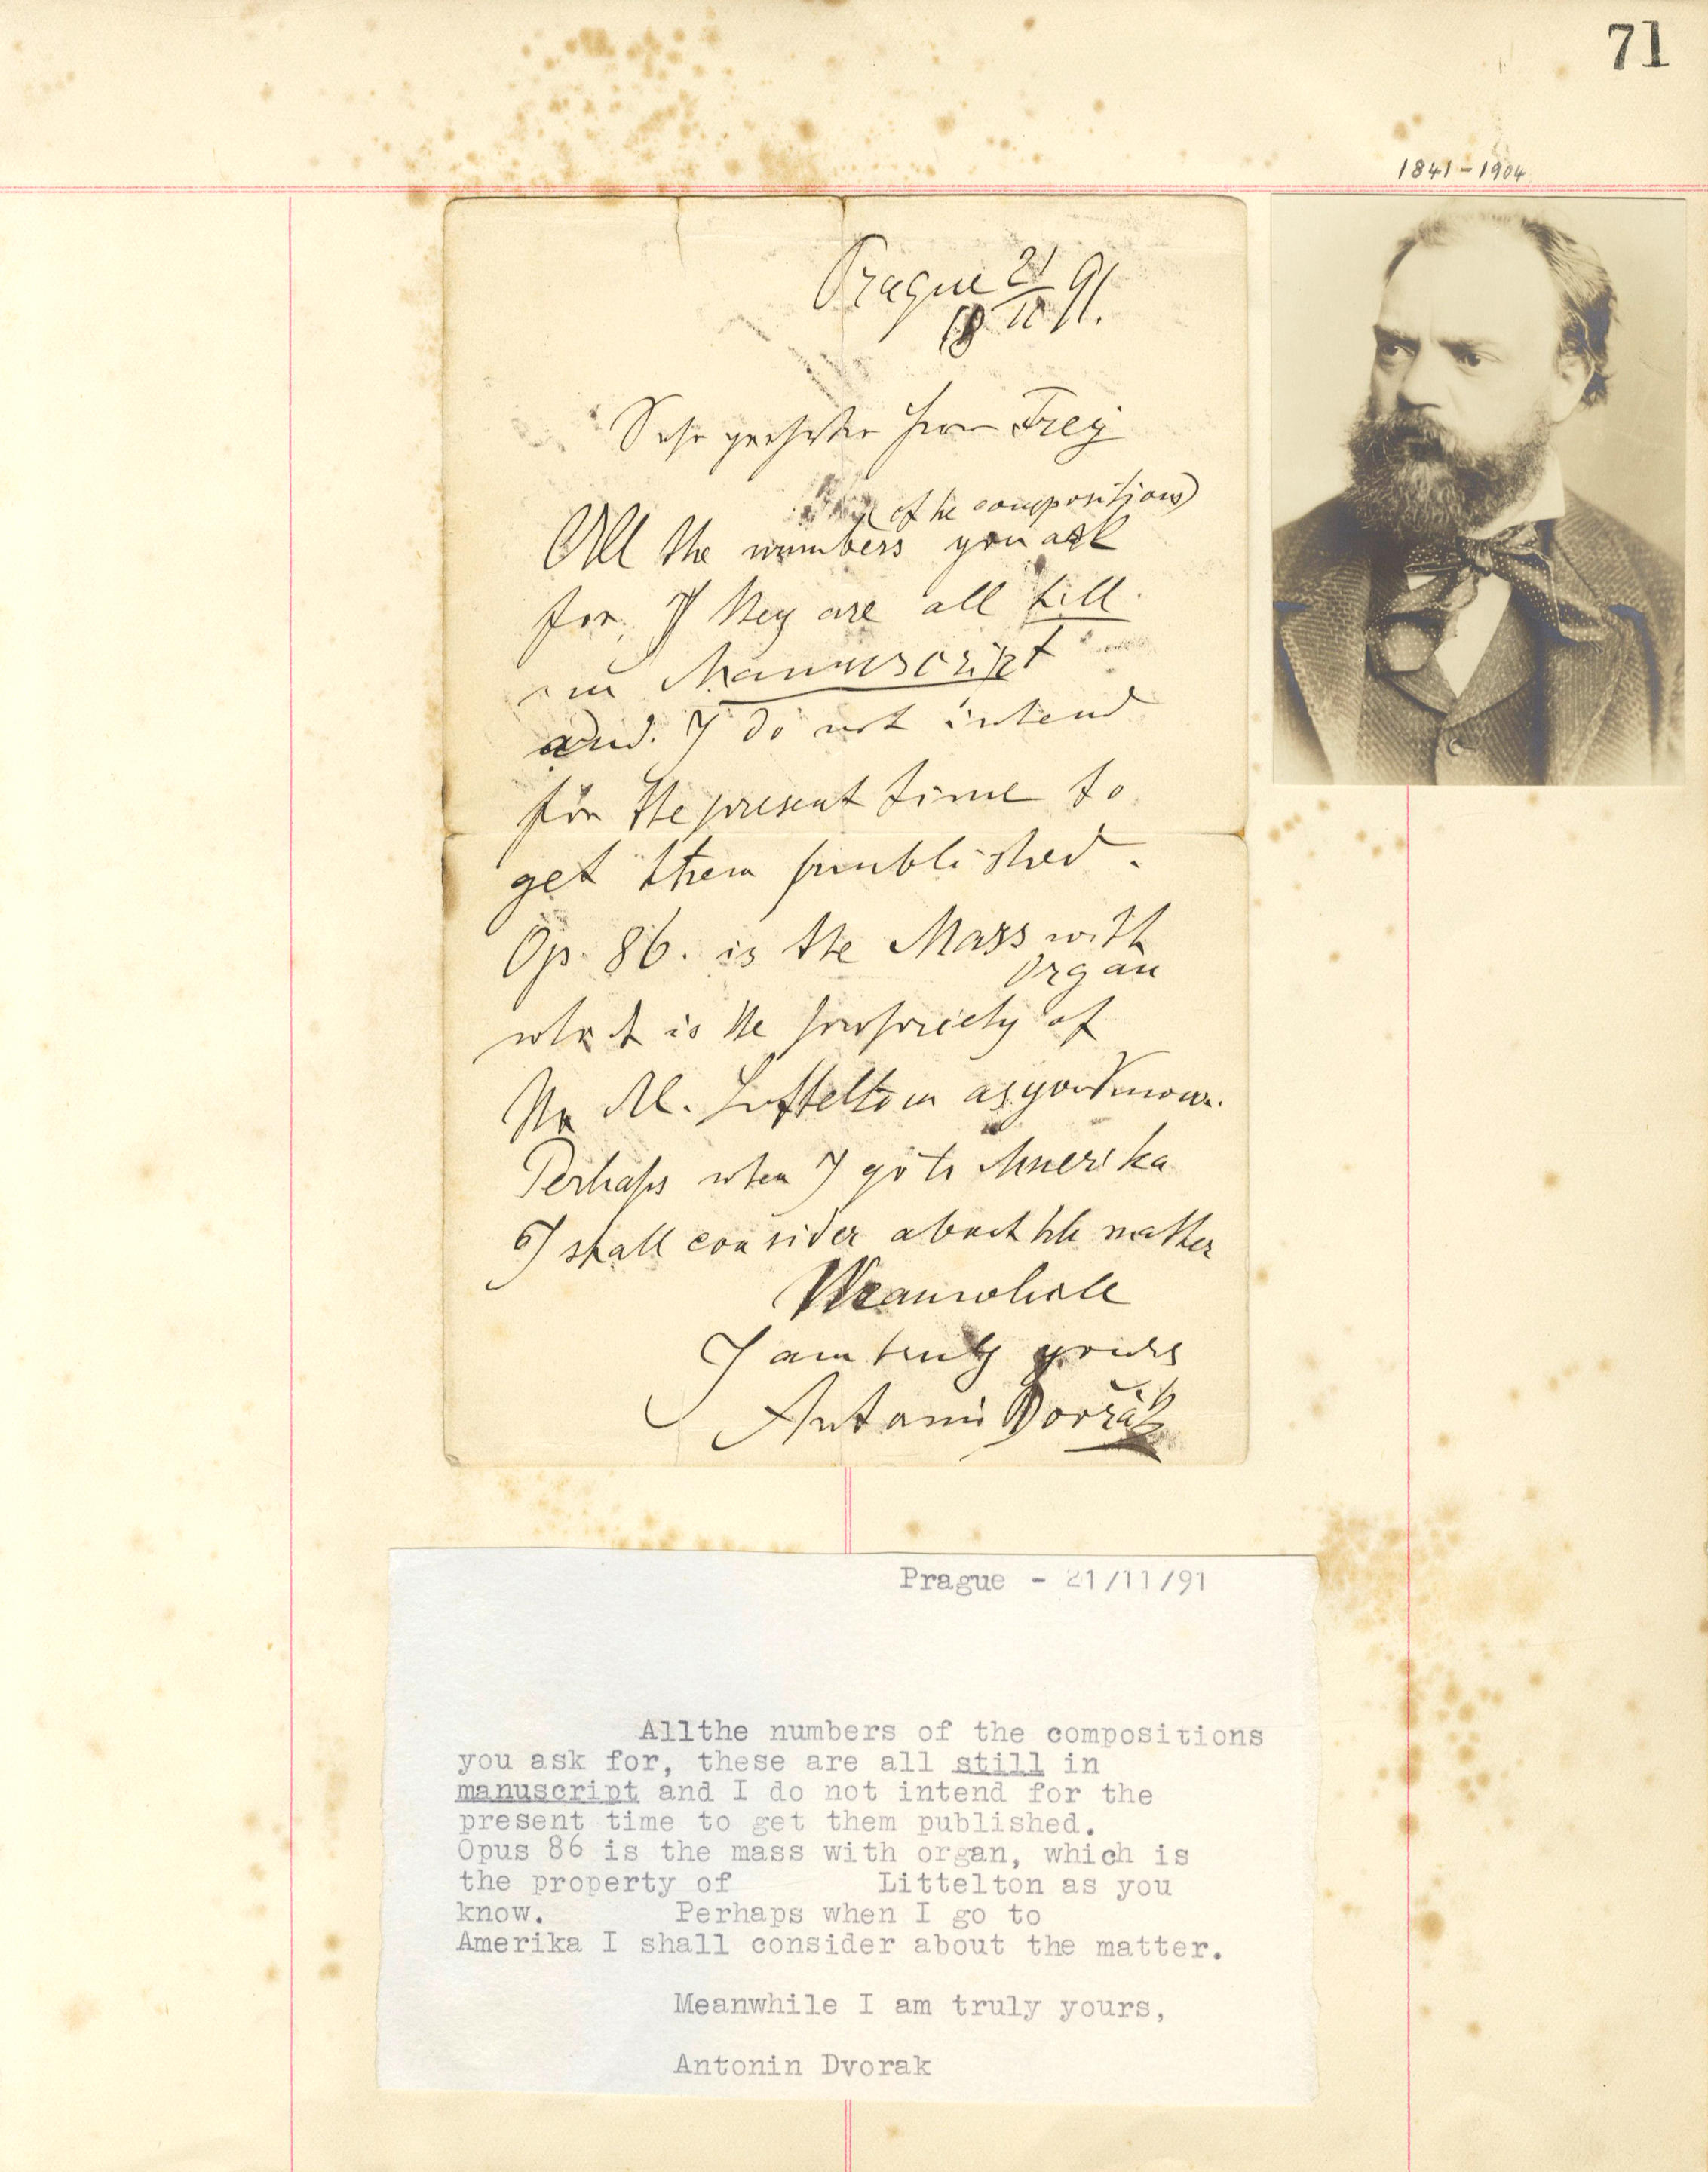 71
1841-1904
Prague 21/11 91.
18
Sehr geehrter Herr Frey
(of he compositions)
All the numbers you ask
for, they are all till
in Manuscript
and. I do not intend
for the present time to
get them punblished.
Op. 86. is the Mass with
Organ
what is the propriety of
Mr Littelton as you know.
Perhaps when I go to Amerika
I shall consider about the matter
Meanwhile
I am truly yours
Antonín Dvořák
Prague - 21/11/91
Allthe numbers of the compositions
you ask for, these are all still in
manuscript and I do not intend for the
present time to get them published.
Opus 86 is the mass with organ, which is
the property of Littelton as you
know. Perhaps when I go to
Amerika I shall consider about the matter.
Meanwhile I am truly yours,
Antonin Dvorak